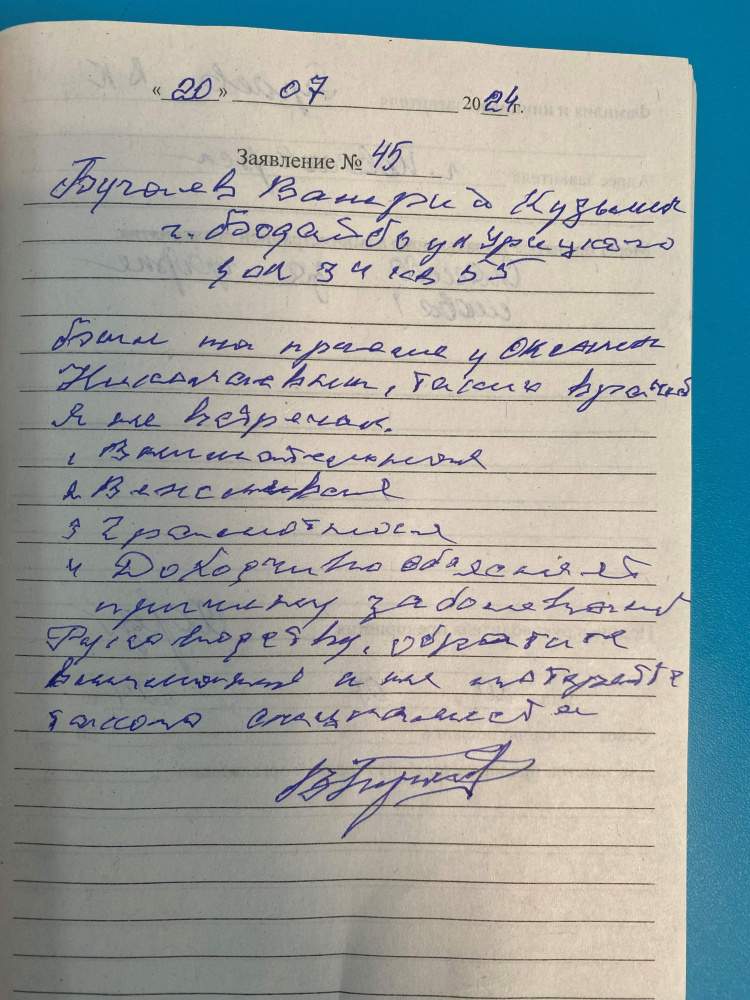 «20» 07 2024 г.
Заявление № 45
Кузьмич
г. Бодайбо ул Урицкого
кв 55
был на приеме у Оксаны
Николаевны, таких врачей
я не встречал.
1 Внимательная
2. Вежливая
3 Грамотная
4 Доходчиво объясняет
причину заболеваний
Руководству, обратите
внимание и не потеряйте
такого специалиста